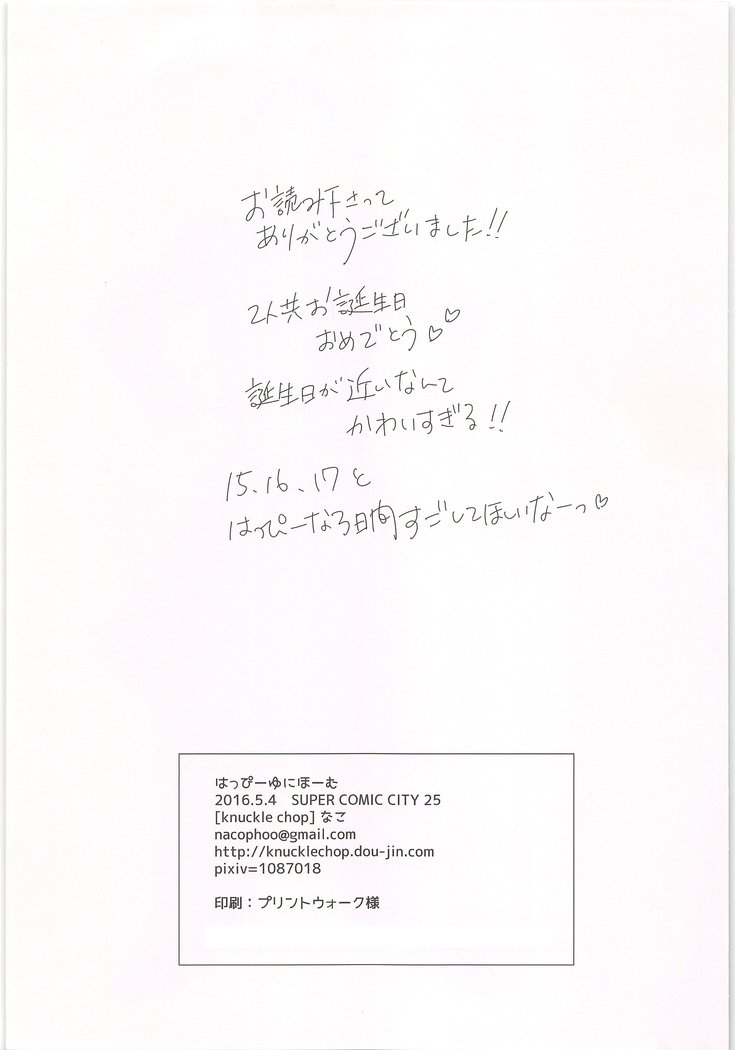 お読み下さって
ありがとうございました!!
2人共お誕生日
おめでとう♡♡
誕生日が近いなんて
かわいすぎる!!
15.16.17と
はっぴーなろ日間すごしてほしいなーっ♡
はっぴーゆにほーむ
2016.5.4　SUPER COMIC CITY 25
[knuckle chop] なこ
nacophoo@gmail.com
http://knucklechop.dou-jin.com
pixiv=1087018
印刷：プリントウォーク様